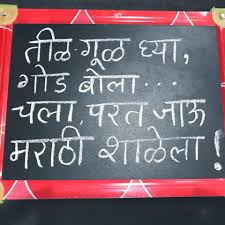 तीळ-गूळ घ्या,
गोड बोला...
चला, परत जाऊ
मराठी शाळेला !